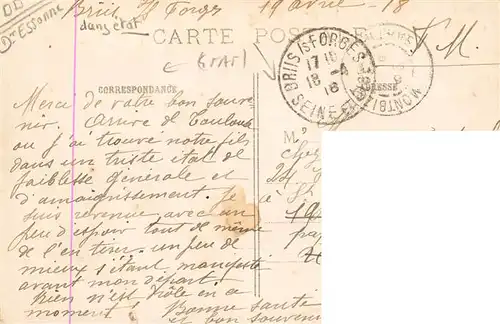 DD
Dt Essonne
Briis s/ Forges 19 avril - 18
dans état
CARTE POS
F. M.
BRIIS-SS-FORGES
17 15
18 -4
18
SEINE-ET-
CORRESPONDANCE
RESSE
Merci de votre bon souve-
nir. Arrive de Toulouse
ou j'ai trouvé notre fils
dans un triste état de
faiblesse générale et
d'amaigrissement. Je
suis revenue avec un
peu d'espoir tout de même
de l'en tirer. un peu de
mieux s'étant manifesté
avant mon départ.
Rien n'est drôle en ce
moment. Bonne santé
et bon souvenir
M.
chez
24
19